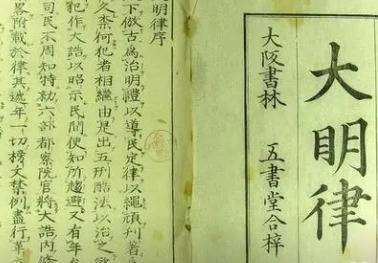 大明律
大阪書林 五書堂合梓
明律序
下倣古為治明禮以導民定律以繩頑刊著
久柰何犯者相繼由是出五刑酷法以治之欲
犯作大誥以昭示民間使知所趨避又有年
司民不周知特勑六部都察院官將大誥內條
畧附載於律其遞年一切榜文禁例盡行革